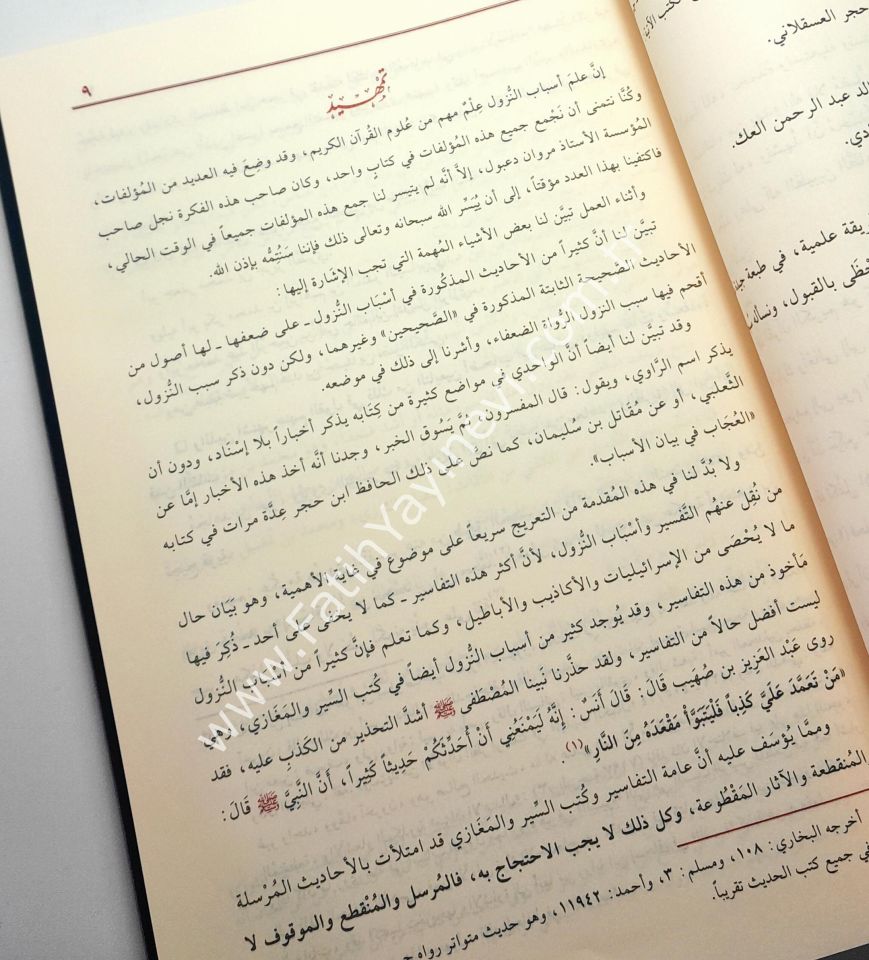 ٩
تمهيد
إنَّ علمَ أسباب النُّزول عِلْمٌ مهم من عُلوم القُرآن الكريم، وقد وضِعَ فيه العديد من المُؤلفات،
وكُنَّا نتمنى أن نَجْمع جميع هذه المُؤلفات في كتابٍ واحد، وكان صاحب هذه الفكرة نجل صاحب
المُؤسسة الأستاذ مروان دعبول، إلاَّ أنَّه لم يتيسر لنا جمع هذه المؤلفات جميعاً في الوقت الحالي،
فاكتفينا بهذا العدد مؤقتاً، إلى أن يُيَسِّر الله سبحانه وتعالى ذلك فإننا سَنُتِمُّه بإذن الله.
وأثناء العمل تبيَّن لنا بعض الأشياء المُهمة التي تجب الإشَارة إليها:
تبيَّن لنا أنَّ كثيراً من الأحاديث المذكُورة في أسْبَاب النُّزول ـ على ضعفها ـ لها أصول من
الأحاديث الصَّحيحة الثابتة المذكورة في «الصَّحيحين» وغيرهما، ولكن دون ذكر سبب النُّزول،
أقحم فيها سبب النزول الرُّواة الضعفاء، وأشرنا إلى ذلك في موضعه.
وقد تبيَّن لنا أيضاً أنَّ الواحدي في مواضع كثيرة من كِتَابه يذكر أخباراً بلا إسْنَاد، ودون أن
يذكر اسم الرَّاوي، ويقول: قال المفسرون، ثمَّ يَسُوق الخبر، وجدنا أنَّه أخذ هذه الأخبار إمَّا عن
الثَّعلبي، أو عن مُقَاتل بن سُليمان، كما نص على ذلك الحافظ ابن حجر عِدَّة مرات في كتابه
«العُجَاب في بيان الأسباب».
ولا بُدَّ لنا في هذه المُقدمة من التعريج سريعاً على موضوع في غاية الأهمية، وهو بَيَان حال
من نُقِلَ عنهم التَّفسير وأسْبَاب النُّزول، لأنَّ أكثر هذه التفاسير ـ كما لا يخفَى على أحد ـ ذُكِرَ فيها
ما لا يُحْصَى من الإسرائيليات والأكاذيب والأباطيل، وكما تعلم فإنَّ كثيراً من أسباب النُّزول
مَأخوذ من هذه التفاسير، وقد يُوجد كثير من أسباب النُّزول أيضاً في كُتب السِّير والمَغَازي، وهي
ليست أفضل حالاً من التفاسير، ولقد حذَّرنا نَبينا المُصْطَفى ﷺ أشدَّ التحذير من الكَذبِ عليه، فقد
روى عَبْد العَزِيز بن صُهَيب قَالَ: قَالَ أنَسٌ: إنَّهُ لَيَمْنَعُنِي أنْ أُحَدِّثَكُمْ حَدِيثاً كَثِيراً، أنَّ النَّبِيَّ ﷺ قَالَ:
«مَنْ تَعَمَّدَ عَلَيَّ كَذِباً فَلْيَتَبَوَّأْ مَقْعَدَهُ مِنَ النَّارِ»(١).
وممَّا يُؤسَف عليه أنَّ عامة التفاسير وكُتب السِّير والمَغَازي قد امتلأت بالأحاديث المُرْسلة
والمُنقطعة والآثار المَقْطُوعة، وكل ذلك لا يجب الاحتجاج به، فالمُرسل والمُنْقطع والموقوف لا
أخرجه البخاري: ١٠٨، ومسلم: ٣، وأحمد: ١١٩٤٢، وهو حديث متواتر رواه
في جميع كتب الحديث تقريباً.
حجر العسقلاني.
عبد الرحمن العك.
ريقة علمية، في طبعة
بالقبول،
www.FatihYayinevi.com